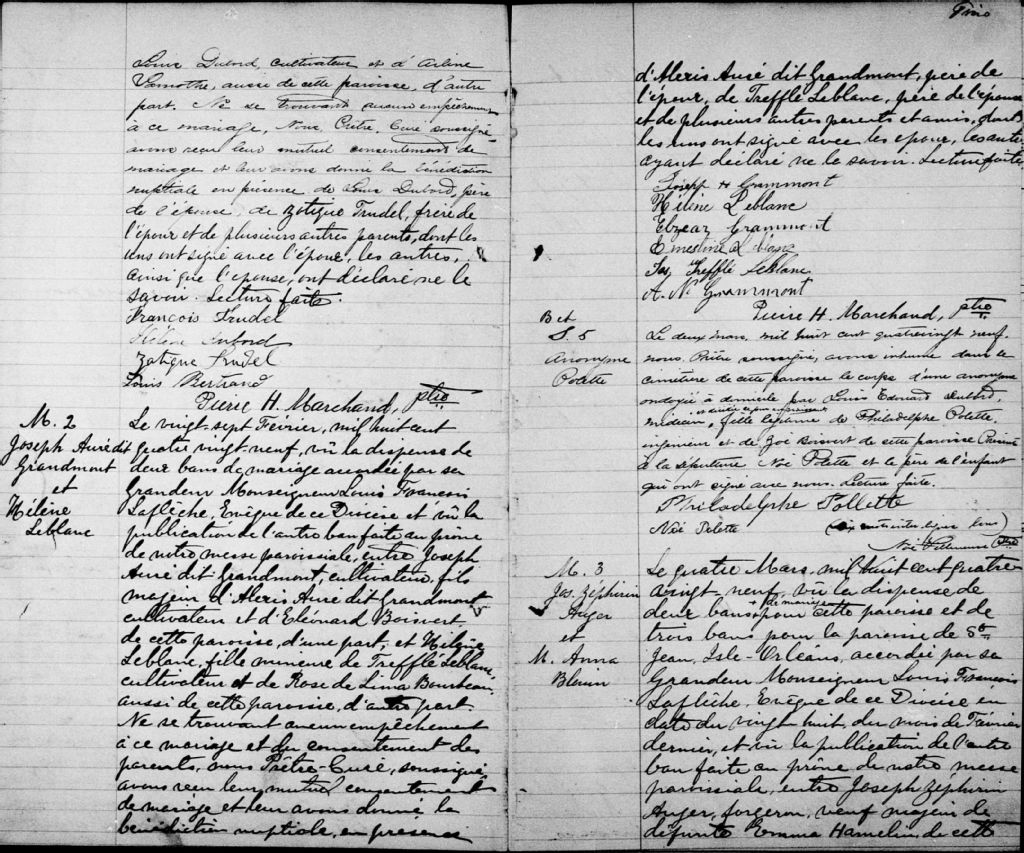 Louis Dubord, cultivateur et d'Arline
Lamothe, aussi de cette paroisse, d'autre
part, Ne se trouvant aucun empêchement
à ce mariage, Nous, Prêtre, Curé soussigné
avons reçu leur mutuel consentement de
mariage et leur avons donné la bénédiction
nuptiale en présence de Louis Dubord, père
de l'épouse, de Zotique Trudel, frère de
l'époux et de plusieurs autres parents, dont les
uns ont signé avec l'époux, les autres,
ainsi que l'epouse, ont déclaré ne le
savoir. Lecture faite.
François Trudel
Hélène Dubord
Zotique Trudel
Louis Bertrand
Pierre H. Marchand, ptre
M. 2
Joseph Auré dit
Grandmont
et
Hélène
Leblanc
Le vingt sept Fevrier, mil huit cent
quatre vingt-neuf, vû la dispense de
deux bans de mariage accordée par sa
Grandeur Monseigneur Louis François
Laflêche, Evêque de ce Diocèse et vû la
publication de l'autre ban faite au prône
de notre messe paroissiale, entre Joseph
Auré dit Grandmont, cultivateur, fils
majeur d'Alexis Auré dit Grandmont
cultivateur et d'Eléonard Boisvert
de cette paroisse, d'une part; et Hélène
Leblanc, fille mineure de Trefflé Leblanc,
cultivateur et de Rose de Lima Bourbeau,
aussi de cette paroisse, d'autre part.
Ne se trouvant aucun empêchement
à ce mariage et du consentement des
parents, nous Prêtre-Curé, soussigné
avons reçu leur mutuel consentement
de mariage et leur avons donné la
bénédiction nuptiale, en présence
d'Alexis Auré dit Grandmont, père de
l'époux, de Trefflé Leblanc, père de l'épouse
et de plusieurs autres parents et amis, dont
les uns ont signé avec les epoux, les autres
ayant déclaré ne le savoir. Lecture faite.
Joseph H Grammont
Hélène Leblanc
Elzear Grammont
Jos. Trefflé Leblanc
A. N. Grammont
Pierre H. Marchand, ptre
B et
S. 5
Anonyme
Polette
Le deux mars, mil huit cent quatrevingt neuf.
nous, Prêtre soussigné, avons inhumé dans le
cimetière de cette paroisse le corps d'une anonyme
ondoyée à domicile par Louis Edouard Dubord,
médecin, fille légitime de Philadelphe Polette,
ingénieur et de Zoé Boisvert de cette paroisse Présents
à la sépulture Noé Polette et le père de l'enfant
qui ont signé avec nous. Lecture faite.
Philadelphe Pollette
Noé Polette
M. 3
Jos. Zéphirin
Auger
et
M. Anna
Blouin
Le quatre Mars, mil huit cent quatre
vingt neuf, vû la dispense de
deux bans + de mariage pour cette paroisse et de
trois bans pour la paroisse de St
Jean, Isle-Orléans, accordée par sa
Grandeur Monseigneur Louis François
Laflêche, Evêque de ce Diocèse en
date du vingt huit du mois de Février
dernier, et vû la publication de l'autre
ban faite au prône de notre messe
paroissiale, entre Joseph Zéphirin
Auger, forgeron, veuf majeur de
défunte Emma Hamelin, de cette